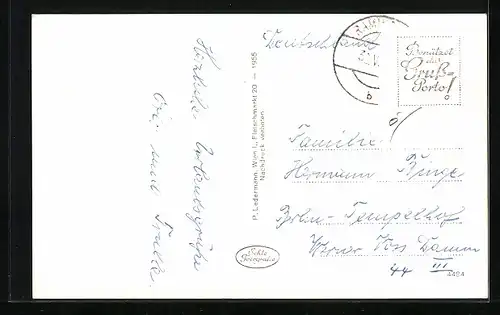 Deutschland
Benützet
das
Gruß-
Porto!
Familie
Hermann Binge
Berlin-Tempelhof
Werner Voss Damm
44 III
Herzliche Urlaubsgrüße
P. Ledermann, Wien I., Fleischmarkt 20 — 1955
Nachdruck verboten.
Echte